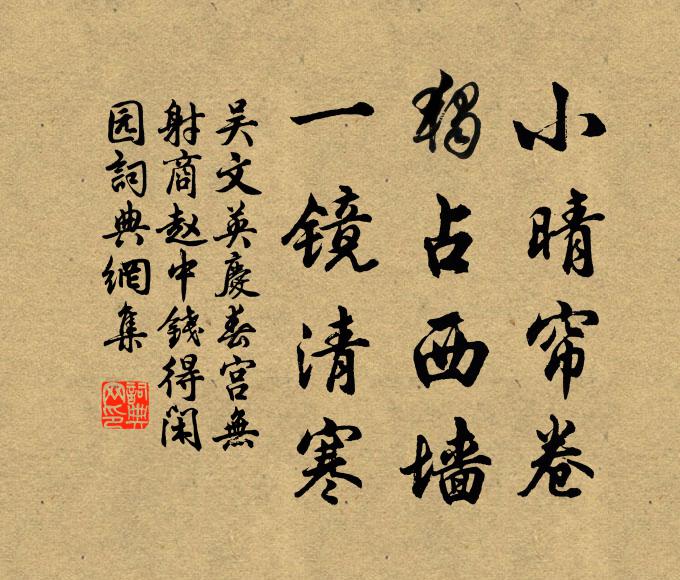 小晴帘卷
独占西墙
一镜清寒
吴文英慶春宫無
射商赵中錢得闲
园詞典網集
詞典網印